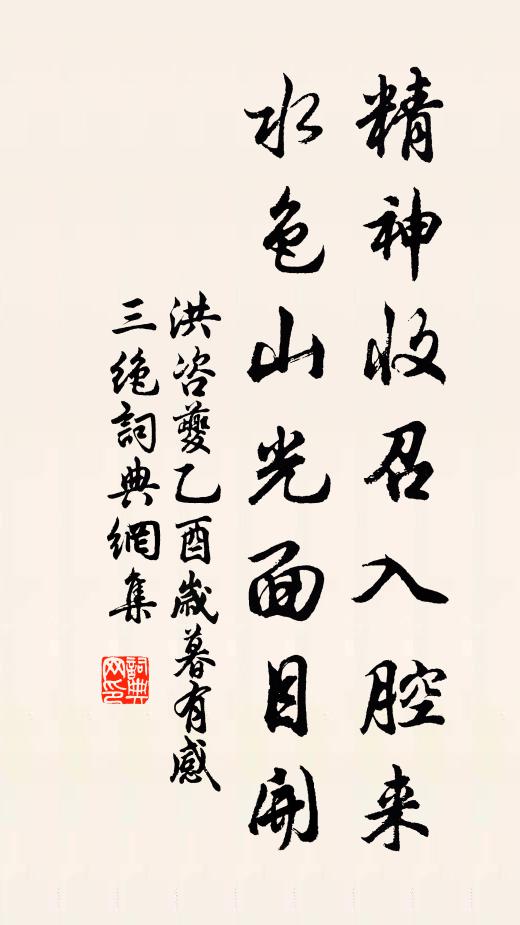 精神收召入腔来
水色山光面目開
洪咨夔乙酉歲暮有感
三绝詞典網集
詞典網印